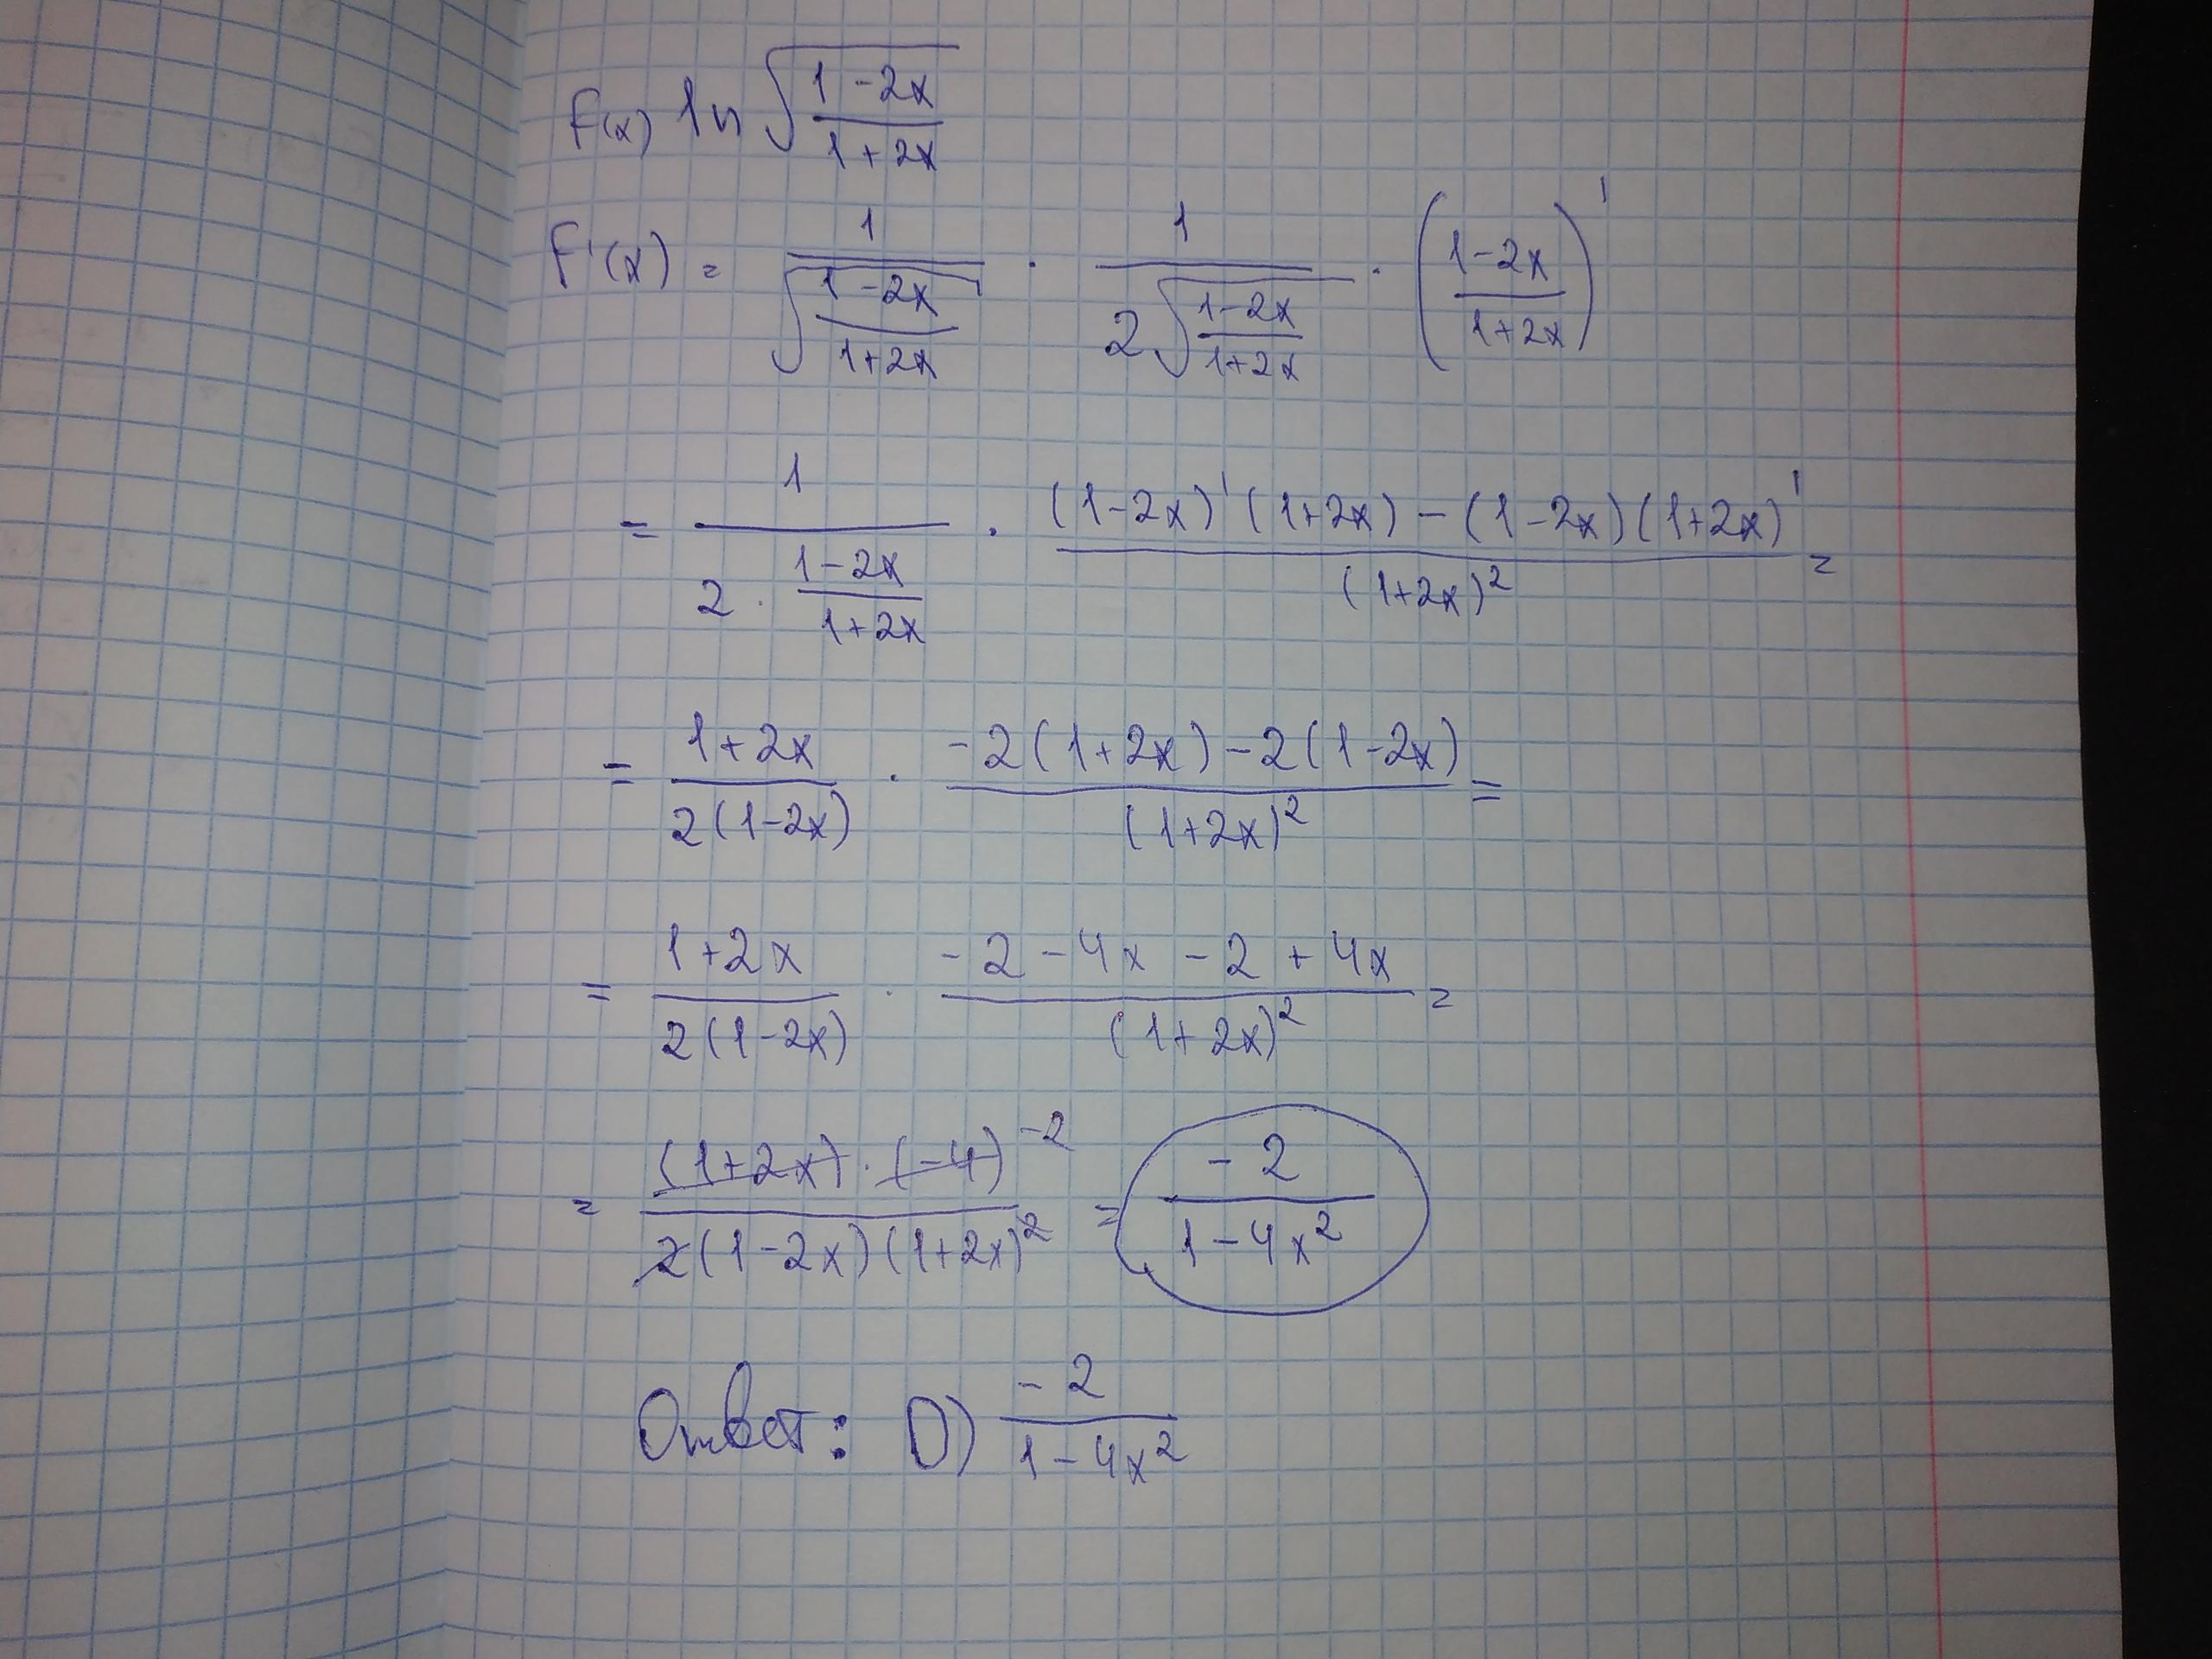 f(x) ln √((1-2x)/(1+2x))
f'(x) = 1/√((1-2x)/(1+2x)) · 1/(2√((1-2x)/(1+2x))) · ((1-2x)/(1+2x))'
= 1/(2 · (1-2x)/(1+2x)) · ((1-2x)'(1+2x) - (1-2x)(1+2x)')/(1+2x)² =
= (1+2x)/(2(1-2x)) · (-2(1+2x) - 2(1-2x))/(1+2x)² =
= (1+2x)/(2(1-2x)) · (-2 - 4x - 2 + 4x)/(1+2x)² =
= ((1+2x) · (-4) -2)/(2(1-2x)(1+2x)²) = -2/(1-4x²)
Ответ: D) -2/(1-4x²)